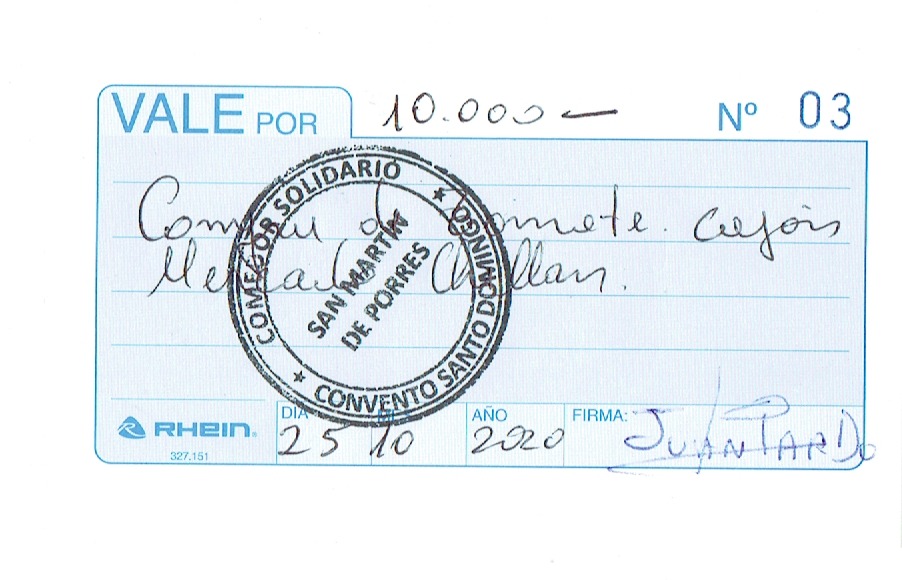 VALE POR 10.000 — Nº 03
Compra de tomate. cajón
Mercado Chillan.
COMEDOR SOLIDARIO
SAN MARTIN
DE PORRES
CONVENTO SANTO DOMINGO
RHEIN®
327.151
DIA 25 MES 10 AÑO 2020 FIRMA: JUAN PARDO